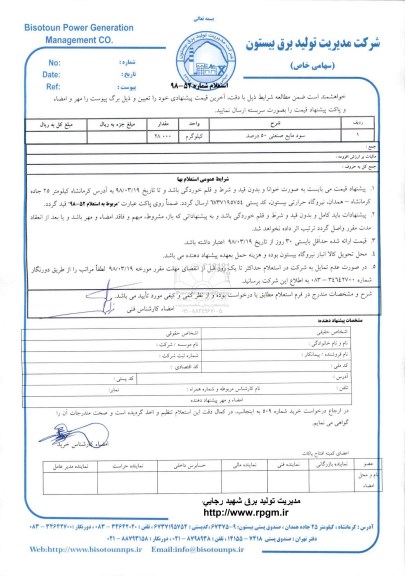 بسمه تعالی
Bisotoun Power Generation
Management CO.
شرکت مدیریت تولید برق بیستون
(سهامی خاص)
No:
شماره :
Date:
تاریخ :
Ref:
پیوست :
استعلام شماره ۵۲-۹۸
خواهشمند است ضمن مطالعه شرایط ذیل با دقت، آخرین قیمت پیشنهادی خود را تعیین و ذیل برگ پیوست را مهر و امضاء
و پاکت پیشنهاد قیمت را بصورت سربسته ارسال نمایید.
ردیف شرح واحد مقدار مبلغ جزء به ریال مبلغ کل به ریال
۱ سود مایع صنعتی ۵۰ درصد کیلوگرم ۲۸۰۰۰
جمع :
مالیات بر ارزش افزوده :
جمع کل به حروف :
شرایط عمومی استعلام بها
۱. پیشنهاد قیمت می بایست به صورت خوانا و بدون قید و شرط و قلم خوردگی باشد و تا تاریخ ۹۸/۰۳/۱۹ به آدرس کرمانشاه کیلومتر ۲۵ جاده
کرمانشاه – همدان، نیروگاه حرارتی بیستون، کد پستی ۶۷۳۷۱۹۵۷۵۴ ارسال گردد. ضمناً روی پاکت عبارت "مربوط به استعلام ۵۲-۹۸" قید گردد.
۲. پیشنهادات باید کامل و بدون قید و شرط و قلم خوردگی باشد و به پیشنهاداتی که باز، مشروط، مبهم و فاقد امضاء و مهر باشد و یا بعد از انقضاء
مدت مقرر واصل گردد ترتیب اثر داده نخواهد شد.
۳. قیمت ارائه شده حداقل بایستی ۳۰ روز از تاریخ ۹۸/۰۳/۱۹ اعتبار داشته باشد.
۴. محل تحویل کالا انبار نیروگاه بیستون بوده و هزینه حمل بعهده پیشنهاد دهنده می باشد.
۵. در صورت عدم تمایل به شرکت در استعلام حداکثر تا یک روز قبل از انقضای مهلت مقرر مورخه ۹۸/۰۳/۱۹ لطفاً مراتب را از طریق دورنگار
شماره ۳۴۶۴۲۷۰۰ – ۰۸۳ به اطلاع این شرکت برسانید.
شرح و مشخصات مندرج در فرم استعلام مطابق با درخواست بوده و از نظر کمی و کیفی مورد تأیید می باشد.
امضاء کارشناس فنی
مشخصات پیشنهاد دهنده:
اشخاص حقیقی
اشخاص حقوقی
نام و نام خانوادگی :
نام موسسه / شرکت :
نام فروشنده / پیمانکار :
شماره ثبت شرکت :
کد ملی :
کد اقتصادی :
آدرس :
کد پستی :
تلفن :
نام کارشناس مربوطه و شماره همراه :
نمابر:
امضاء و مهر پیشنهاد دهنده
در ارجاع درخواست خرید شماره ۵۰۹ به اینجانب، در کمال دقت این استعلام تنظیم و اخذ گردیده است و صحت مندرجات آن را
گواهی می نمایم.
امضاء کارشناس خرید
اعضای کمیته افتتاح پاکات
عضو نماینده بازرگانی نماینده فنی نماینده مالی حسابرس داخلی نماینده حراست نماینده مدیر عامل
نام و محل
امضاء
مدیریت تولید برق شهید رجایی
http://www.rpgm.ir
Web:http://www.bisotounps.ir Email:info@bisotounps.ir